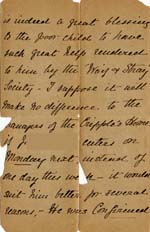 is indeed a great blessing
to the poor child to have
such great help rendered
to him by the Waifs & Strays
Society - I suppose it will
make no difference to the
managers of the Cripple's Home
if J. enters on
Monday next instead of
one day this week - it would
suit him better for several
reasons, - He was Confirmed